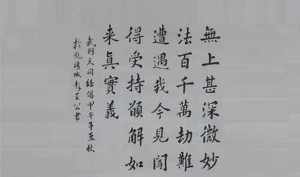 無上甚深微妙
法百千萬劫難
遭遇我今見聞
得受持願解如
來真實義
武則天詞經偈甲午年孟秋